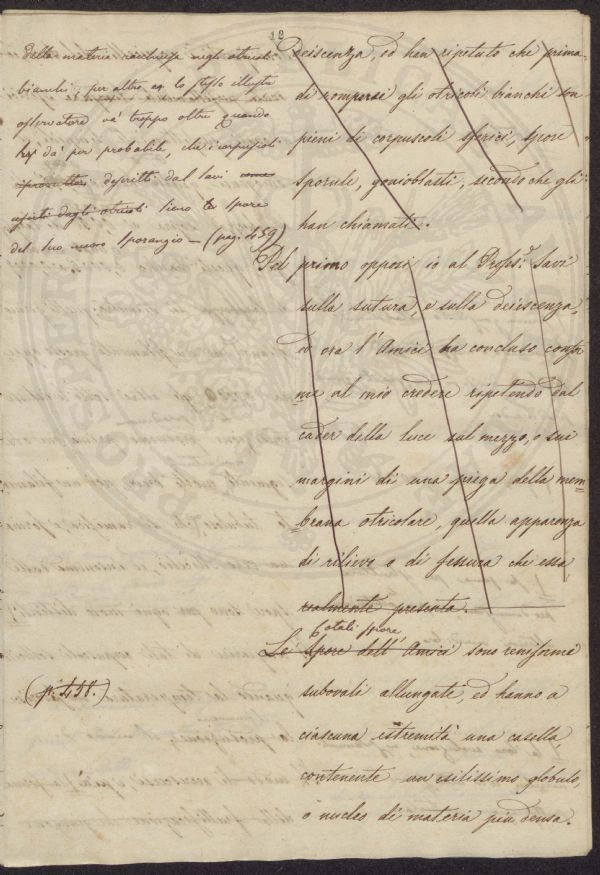 12
dalla materia racchiusa negli otricoli
bianchi; per altro lo stesso illustre
osservatore va troppo oltre quando
dà per probabile, che i corpuscoli
descritti dal Savi come
usciti dagli otricoli sieno le spore
del suo nuovo Sporangio — (pag. 459)
deiscenza, ed han ripetuto che prima
di rompersi gli otricoli bianchi son
pieni di corpuscoli sferici, spore
sporule, gonioblasti, secondo che gli
han chiamati.
Pel primo opposi io al Profes.r Savi
sulla sutura, e sulla deiscenza,
ed ora l'Amici ha concluso confor
me al mio credere ripetendo dal
cader della luce sul mezzo, o sui
margini di una piega della mem
brana otricolare, quella apparenza
di rilievo e di fessura che essa
realmente presenta.
Cotali spore
Le Spore dell'Amici sono reniformi
(p. 458.)
subovali allungate, ed hanno a
ciascuna estremità una casella
contenente un esilissimo globulo,
o nucleo di materia più densa.